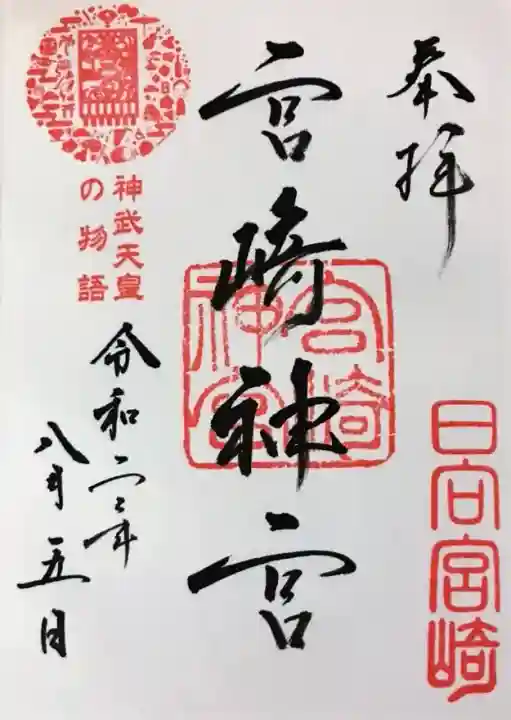 奉拝
日向宮崎
宮崎神宮
宮崎神宮
神武天皇
の物語
令和二年
八月五日